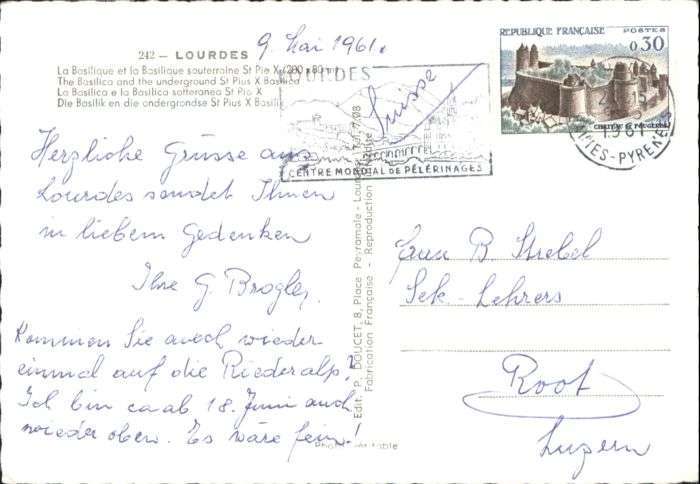 242 — LOURDES
9 Mai 1961.
La Basilique et la Basilique souterraine St Pie X (200 x 80 m)
The Basilica and the underground St Pius X Basilica
La Basilica e la Basilica sotteranea St Pio X
Die Basilik en die ondergrondse St Pius X Basiliek
Herzliche Grüsse aus
Lourdes sendet Ihnen
in liebem Gedenken
Ihre G. Brogley,
Kommen Sie auch wieder
einmal auf die Riederalp?
Ich bin ca ab 18. Juni auch
wieder oben. Es wäre fein!
LOURDES
CENTRE MONDIAL DE PÈLERINAGES
Suisse
REPUBLIQUE FRANÇAISE POSTES
0,30
CHATEAU DE FOUGERES
1961
TES-PYRENEES
Edit. P. DOUCET, 8, Place Peyramale - Lourdes
Fabrication Française - Reproduction Interdite
Photo véritable
B. Strebel
Sek.-Lehrers
Root
Luzern